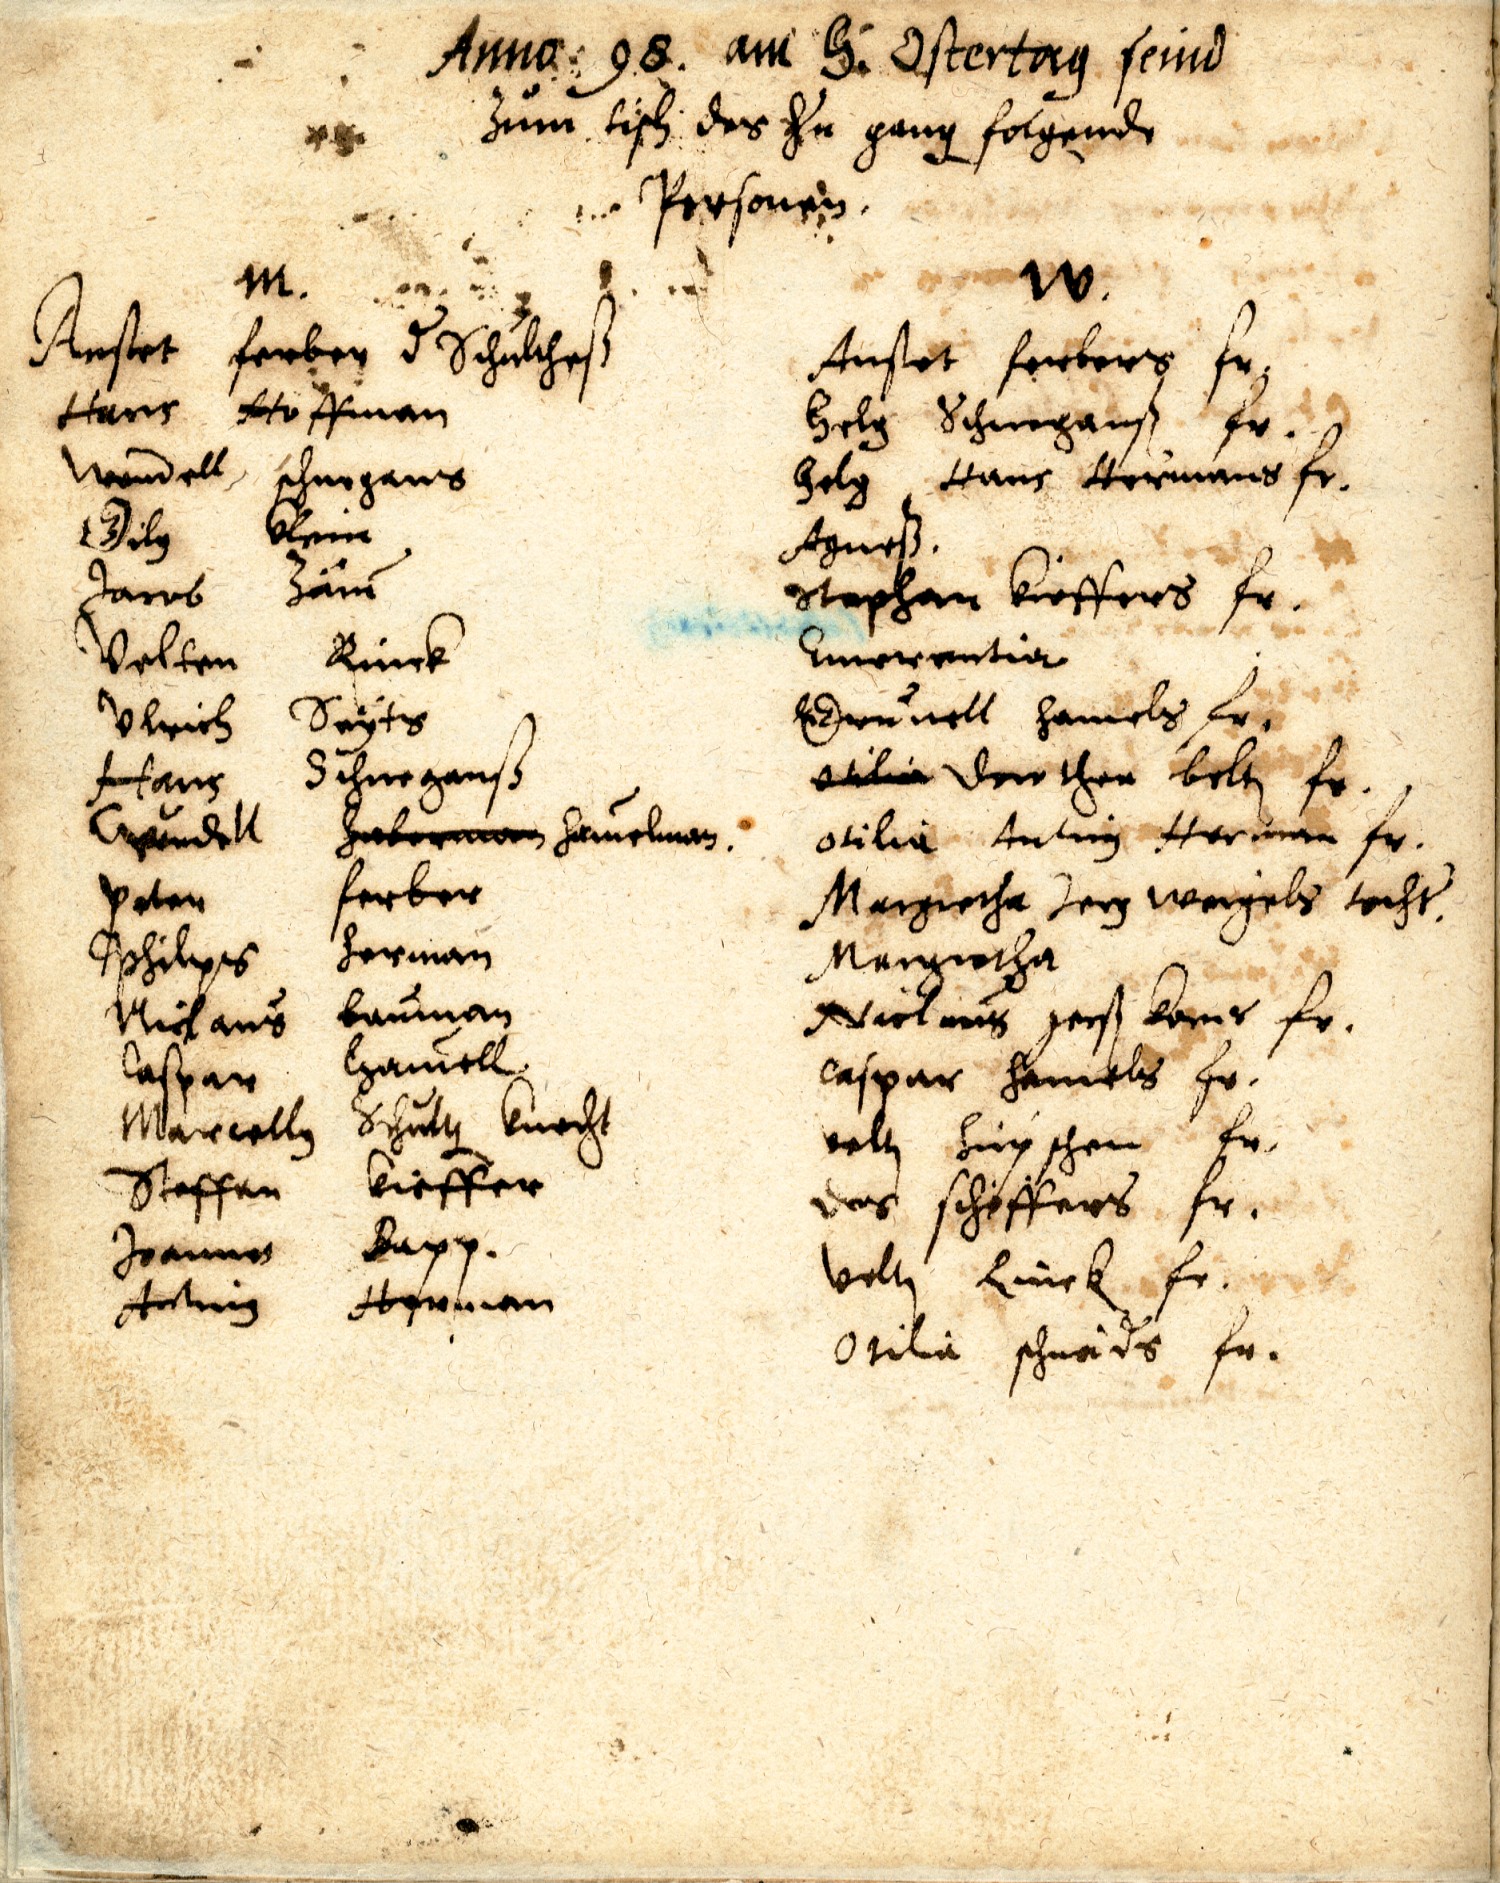 Anno 98. am H. Ostertag seind
zum tisch des Hn gang folgende
Personen.
M.
Anstet ferber d Schultheß
Hans Hoffman
Wendell schnegans
Gilg Klein
Jacob Zäun
Velten Rinck
Vlrich Seyts
Hans Schneganß
Wendell haberman hamelman.
peter ferber
Philips herman
Niclaus bauman
Caspar hamell
Marcell Schultz knecht
Steffan kieffer
Joannes Rapp.
Antonig Herman
W.
Anstet ferbers fr.
Helg Schneganß fr.
Helg Hans Hermans fr.
Agneß.
Stephan kieffers fr.
Emerentia
hamels fr.
otilia Dorothea beltz fr.
otilia Antonig Herman fr.
Margretha Jerg weigels tocht.
Margretha
Niclaus fr.
Caspar hamels fr.
veltz fr.
des schöffers fr.
veltz Rinck fr.
Otilia schneids fr.